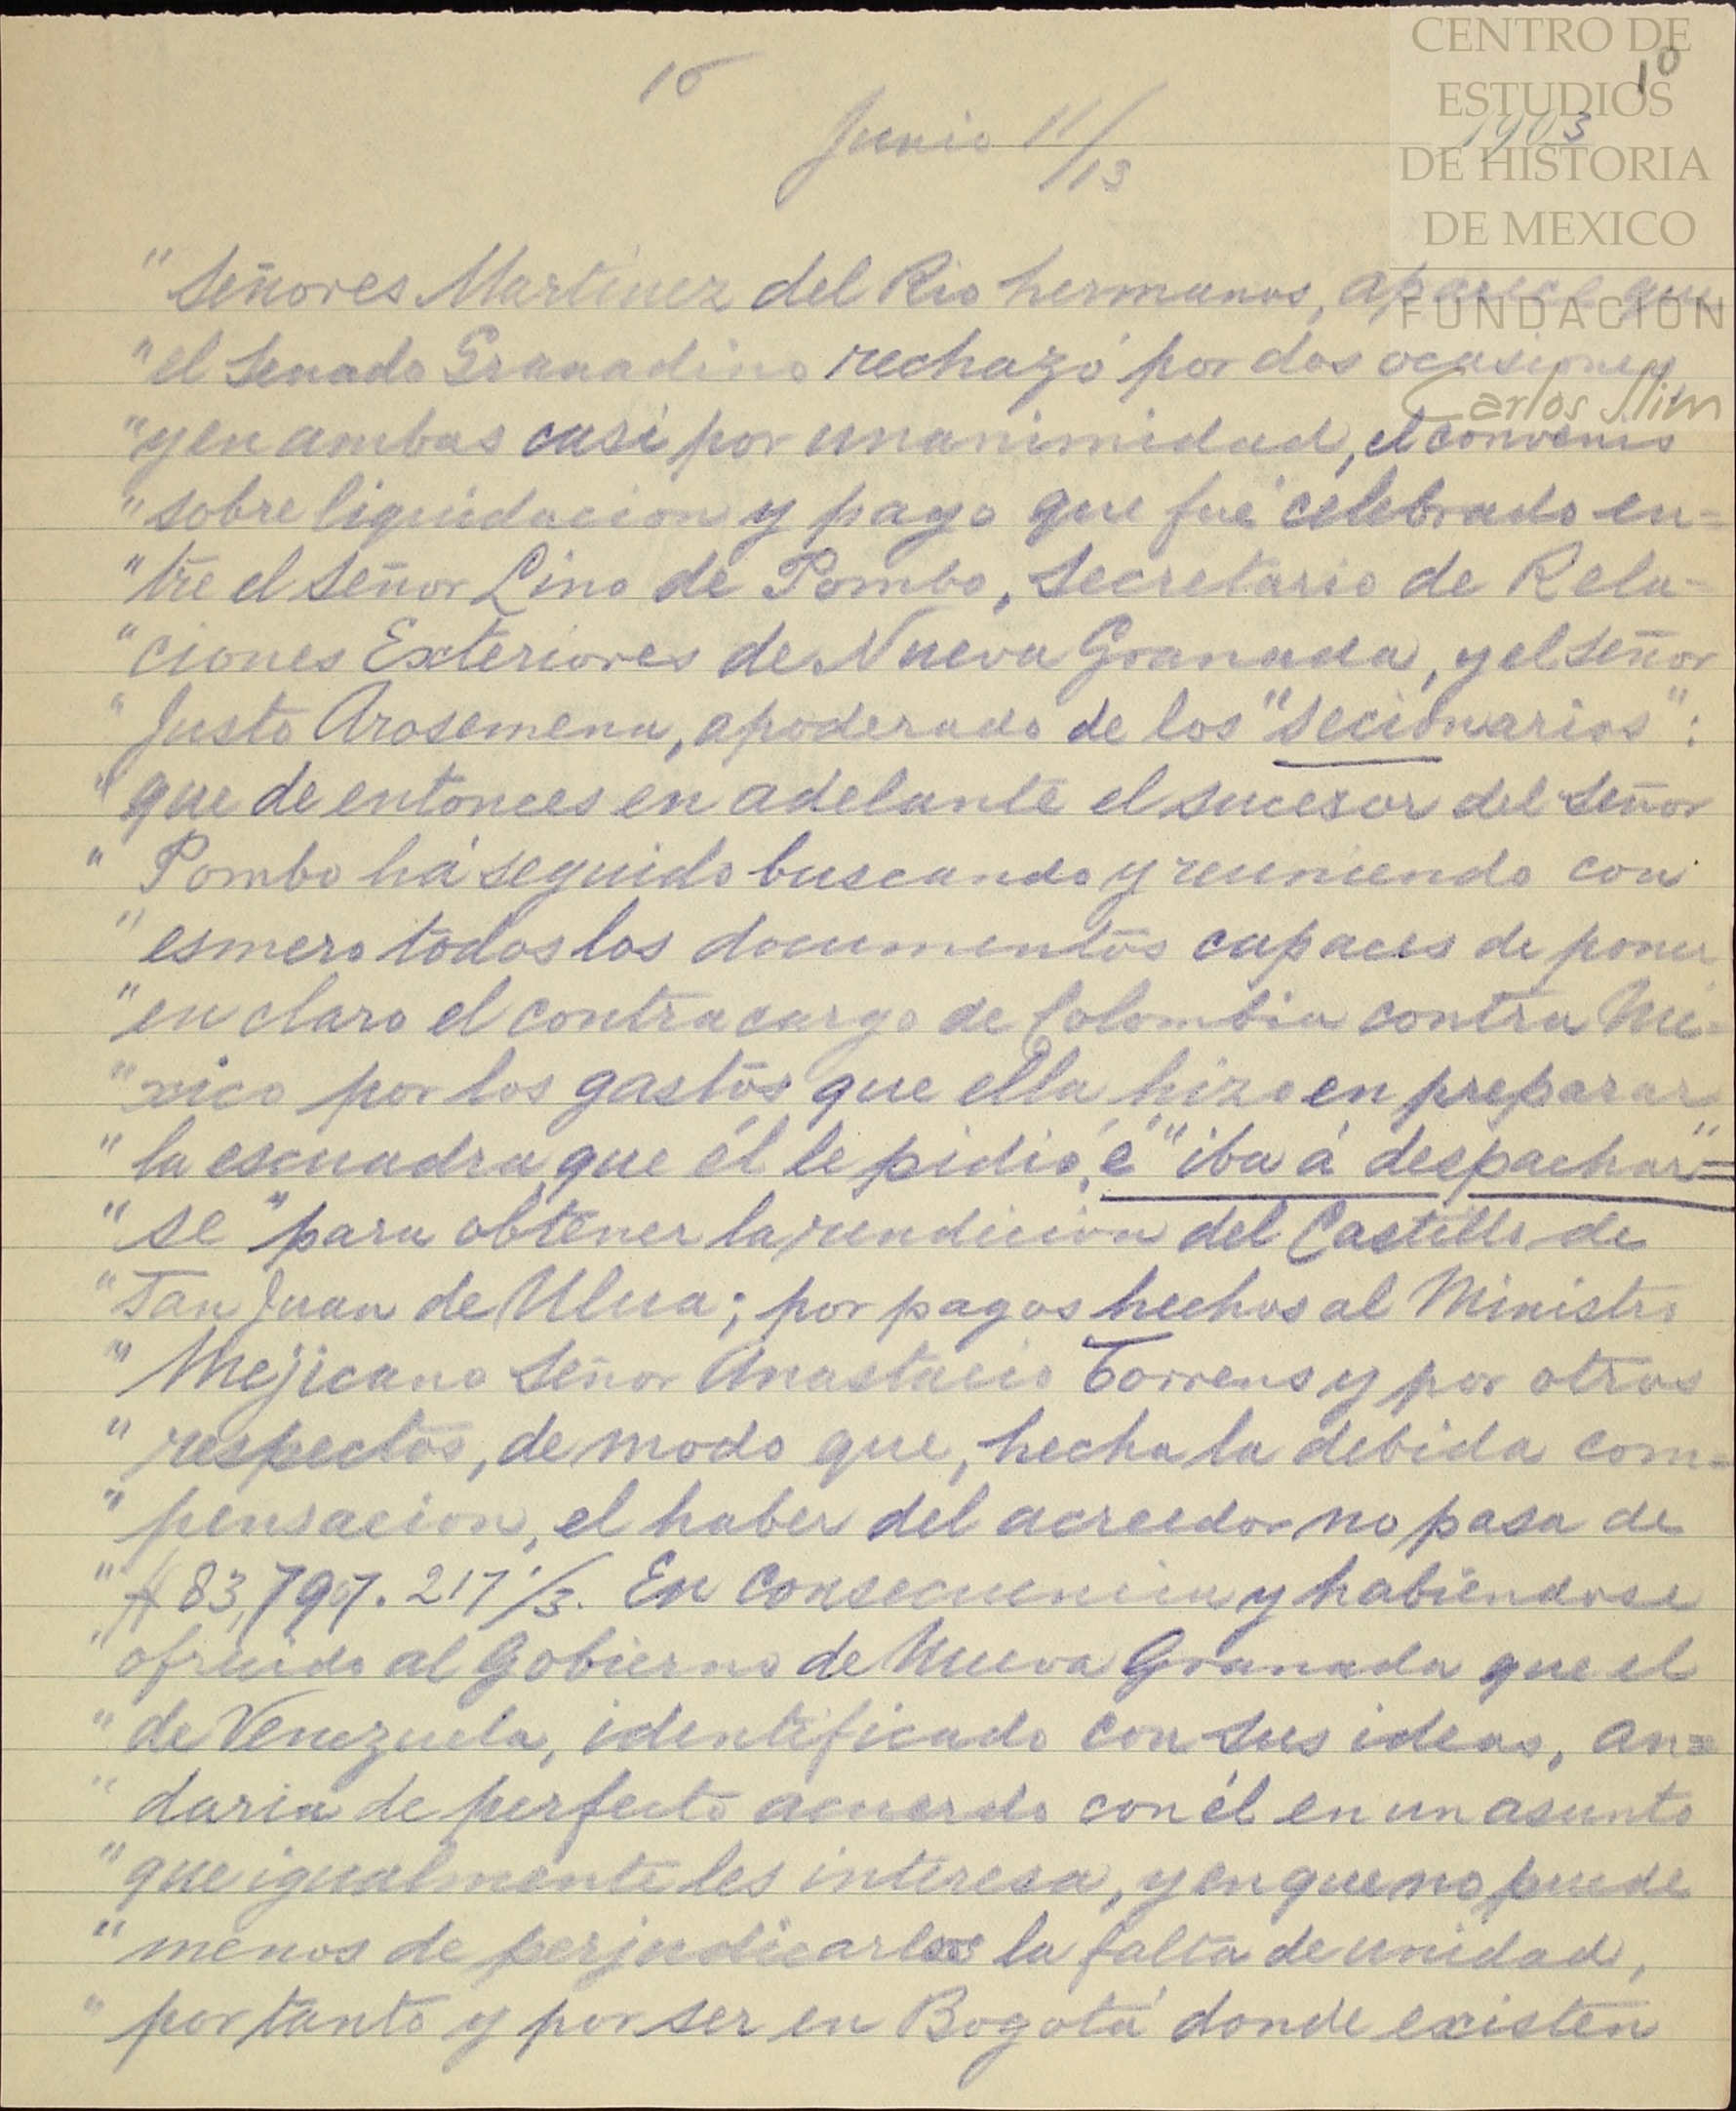 CENTRO DE
ESTUDIOS
DE HISTORIA
DE MEXICO
FUNDACIÓN
Carlos Slim
10
10
1903
Junio 11/13
" Señores Martinez del Rio hermanos, aparece que
" el Senado Granadino rechazó por dos ocasiones
" y en ambas casi por unanimidad, el convenio
" sobre liquidacion y pago que fué celebrado en=
" tre el Señor Lino de Pombo, Secretario de Rela=
" ciones Exteriores de Nueva Granada, y el Señor
" Justo Arosemena, apoderado de los "secionarios":
" que de entonces en adelante el sucesor del Señor
" Pombo há seguido buscando y reuniendo con
" esmero todos los documentos capaces de poner
" en claro el contracargo de Colombia contra Mé=
" xico por los gastos que ella hizo en preparar
" la escuadra que él le pidió, é "iba á despachar"=
" se" para obtener la rendicion del Castillo de
" San Juan de Ulua; por pagos hechos al Ministro
" Mejicano Señor Anastacio Torrens y por otros
" respectos, de modo que, hecha la debida com=
" pensacion, el haber del acreedor no pasa de
" $ 83,797. 217 1/3. En consecuencia y habiendose
" ofrecido al Gobierno de Nueva Granada que el
" de Venezuela, identificado con sus ideas, an=
" daria de perfecto acuerdo con él en un asunto
" que igualmente les interesa, y en que no puede
" menos de perjudicarlos la falta de unidad,
" por tanto y por ser en Bogotá donde existen